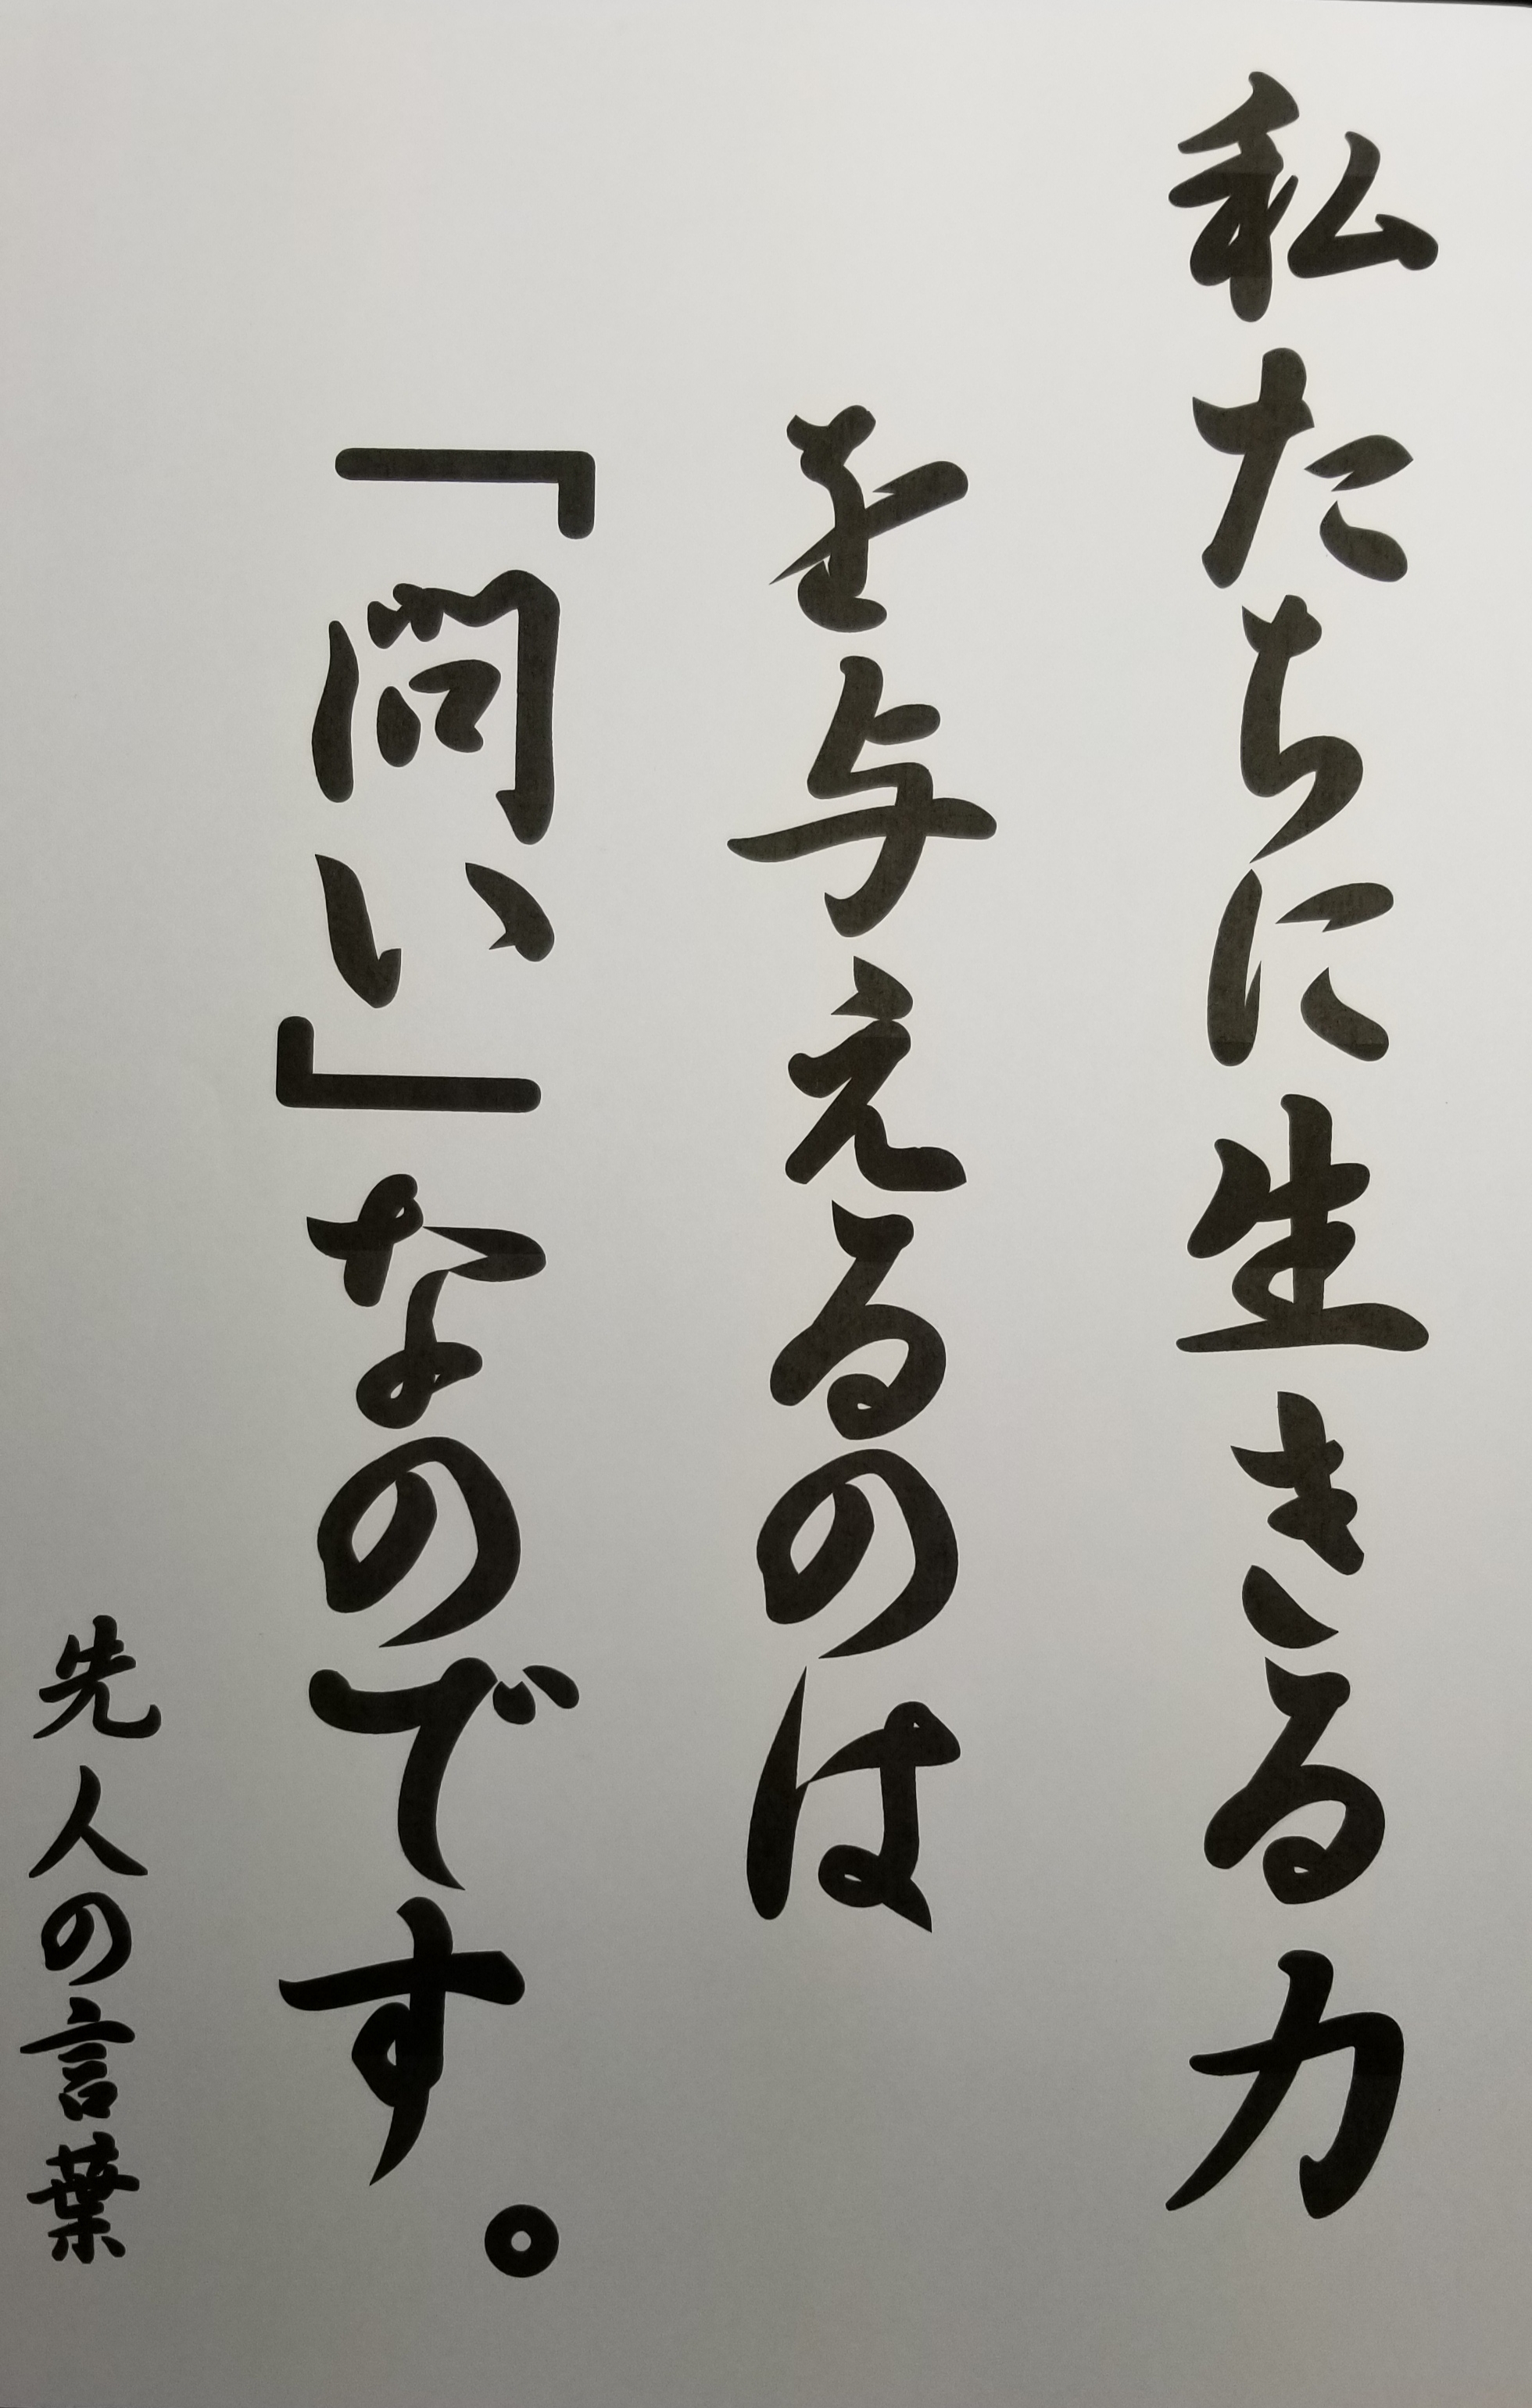 私たちに生きる力
を与えるのは
「問い」なのです。
先人の言葉